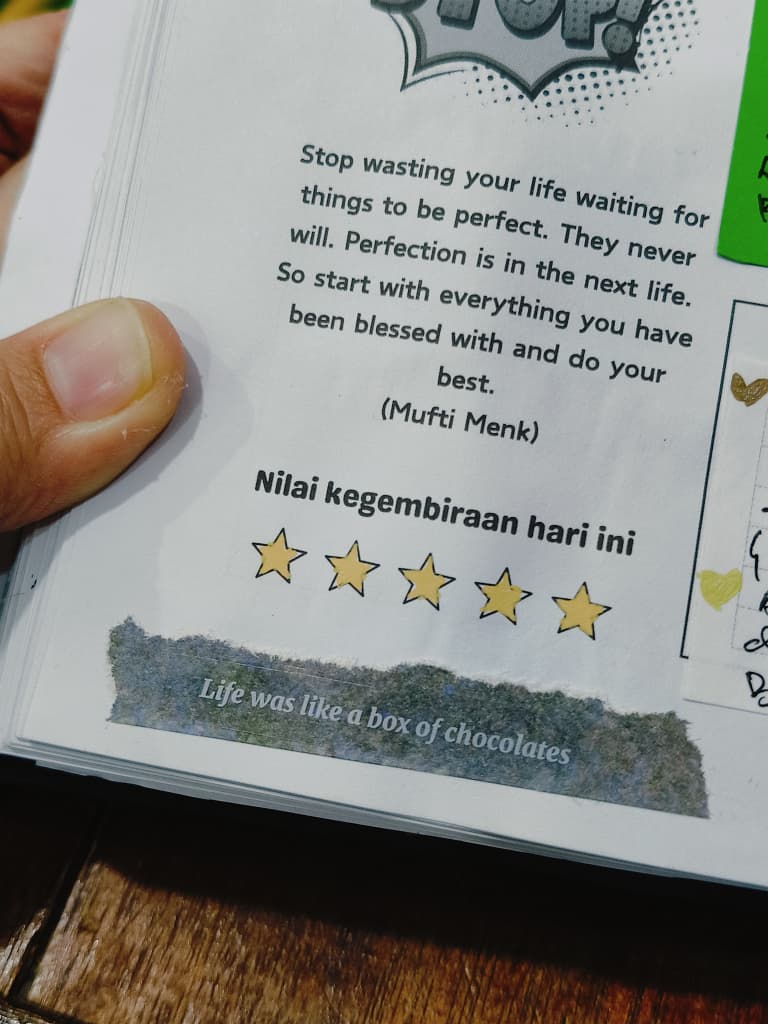 STOP!
Stop wasting your life waiting for
things to be perfect. They never
will. Perfection is in the next life.
So start with everything you have
been blessed with and do your
best.
(Mufti Menk)
Nilai kegembiraan hari ini
Life was like a box of chocolates